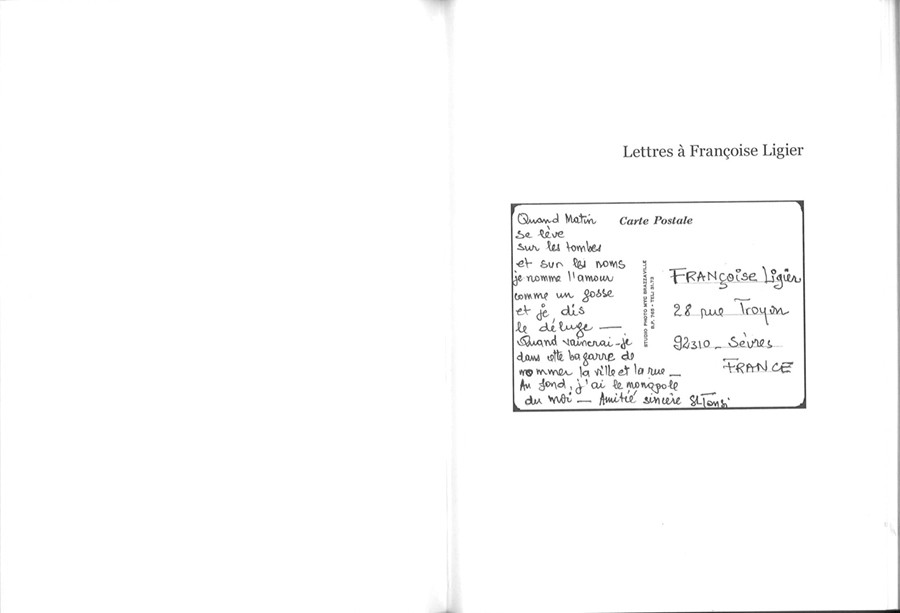 Lettres à Françoise Ligier
Carte Postale
Quand Matin
se lève
sur les tombes
et sur les noms
je nomme l'amour
comme un gosse
et je dis
le déluge —
Quand vaincrai-je
dans cette bagarre de
nommer la ville et la rue —
Au fond, j'ai le monopole
du moi — Amitié sincère
STUDIO PHOTO NYC BRAZZAVILLE
FRANÇOISE Ligier
28 rue Troyon
92310 - Sèvres
FRANCE